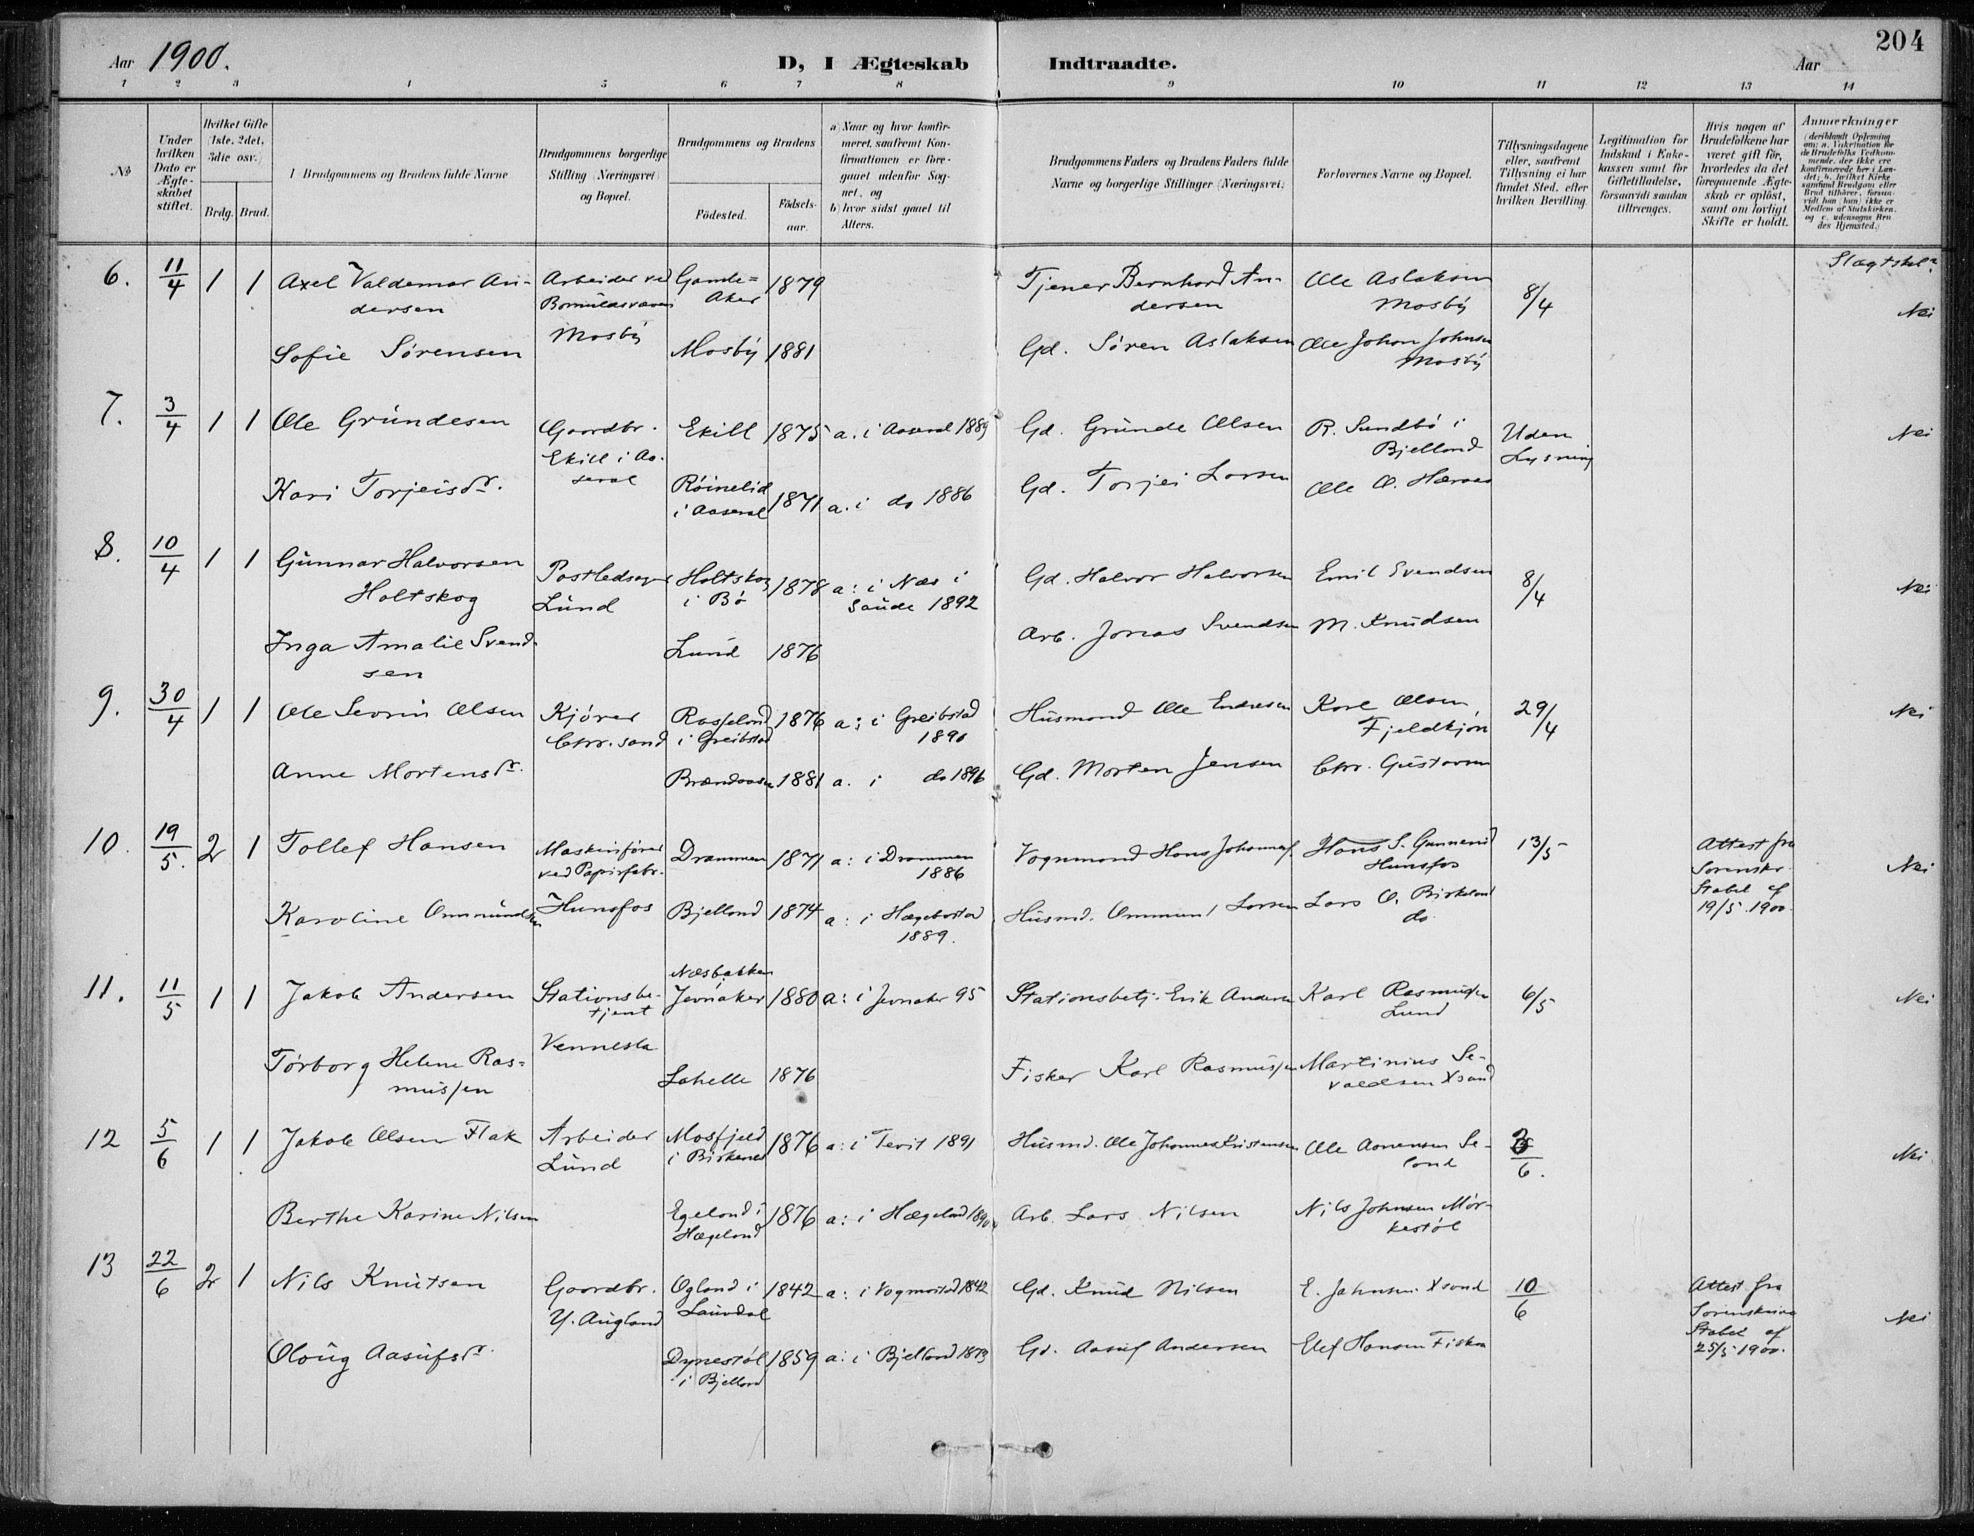 Aar 1900.
D, I Ægteskab Indtraadte.
204
Aar
1 2 3 4 5 6 7 8 9 10 11 12 13 14
No
Under hvilken Dato er Ægteskabet stiftet.
Hvilket Gifte (1ste, 2det, 3die osv.)
Brdg. Brud.
Brudgommens og Brudens fulde Navne
Brudgommens borgerlige Stilling (Næringsvei) og Bopæl.
Brudgommens og Brudens
Födested.
Födselsaar.
a) Naar og hvor konfirmeret, saafremt Konfirmationen er foregaaet udenfor Sognet, og
b) hvor sidst gaaet til Alters.
Brudgommens Faders og Brudens Faders fulde Navne og borgerlige Stillinger (Næringsvei)
Forlovernes Navne og Bopæl.
Tillysningsdagene eller, saafremt Tillysning ei har fundet Sted, efter hvilken Bevilling
Legitimation for Indskud i Enkekassen samt for Giftetilladelse, forsaavidt saadan tiltrænges.
Hvis nogen af Brudefolkene har været gift för, hvorledes da det foregaaende Ægteskab er oplöst, samt om lovligt Skifte er holdt.
Anmærkninger
6. 11/4 1 1 Axel Valdemar Andersen Arbeider ved Mosby Aker 1879 Tjener Bernhard Andersen Ole Aslaksen Mosby 8/4 Nei
Sofie Sørensen Mosby 1881 Gd. Søren Aslaksen Ole Johan Johnsen Mosby
7. 3/4 1 1 Ole Gründesen Gaardbr. Ekill i Aaseral Ekill 1875 a. i Aaseral 1889 Gd. Grunde Olsen R. Sundbø i Bjelland Uden Lysning Nei
Kari Torjeisdr. Røinelid i Aaseral 1871 a. i do 1886 Gd. Torjei Larsen Ole O.
8. 10/4 1 1 Gunnar Halvorsen Holtskog Lund Holtskog i Bø 1878 a: i Næs i Saude 1892 Gd. Halvor Halvorsen Emil Svendsen 8/4 Nei
Inga Amalie Svendsen Lund 1876 Arb. Jonas Svendsen M. Knudsen
9. 30/4 1 1 Ole Severin Olsen Kjører Chr.sand i Greibstad 1876 a: i Greibstad 1890 Husmand Ole Endresen Karl Olsen, 29/4 Nei
Anne Mortensdr. Brændaasen 1881 a. i do 1896 Gd. Morten Jensen Chr. Gustavsen
10. 19/5. 2 1 Tollef Hansen Maskinfører ved Papirfabr. Hunsfos Drammen 1871 a: i Drammen 1886 Vognmand Hans Johannes. Hans S. Hunsfos 13/5 Attest fra Sorenskr. Stabel af 19/5 1900. Nei
Karoline Ommundsen Bjelland 1874 a: i Hægebostad 1889. Husmd. Ommund Larsen Lars O. Birkeland do.
11. 11/5 1 1 Jakob Andersen Stationsbetjent Vennesla Næsbakken Jevnaker 1880 a: i Jevnaker 95 Stationsbetj. Erik Andersen Karl Rasmussen Lund 6/5 Nei
Torborg Helene Rasmussen Lahelle 1876 Fisker Karl Rasmussen Martinius Sevaldsen Xsand
12 5/6 1 1 Jakob Olsen Flak Arbeider Lund Mosfjeld i Birkenes 1876 a: i Tveit 1891 Husmd. Ole Johannes Kristensen Ole Aanensen 3/6. Nei
Berthe Karine Nilsen Egeland i Hægeland 1876 a: i Hægeland 1890 Arb. Lars Nilsen Nils Johnsen Mørkestøl
13 22/6 2 1 Nils Knutsen Gaardbr. Y. Augland Ogland i Laudal 1842 a: i Vogmostad 1842 Gd. Knud Nilsen E. Johnsen Xsand 10/6 Attest fra Sorenskriver Stabel af 25/5 1900. Nei
Oloug Aasufsdr. Dynestøl i Bjelland 1859 a: i Bjelland 1873 Gd. Aasuf Andersen Elef Hansen